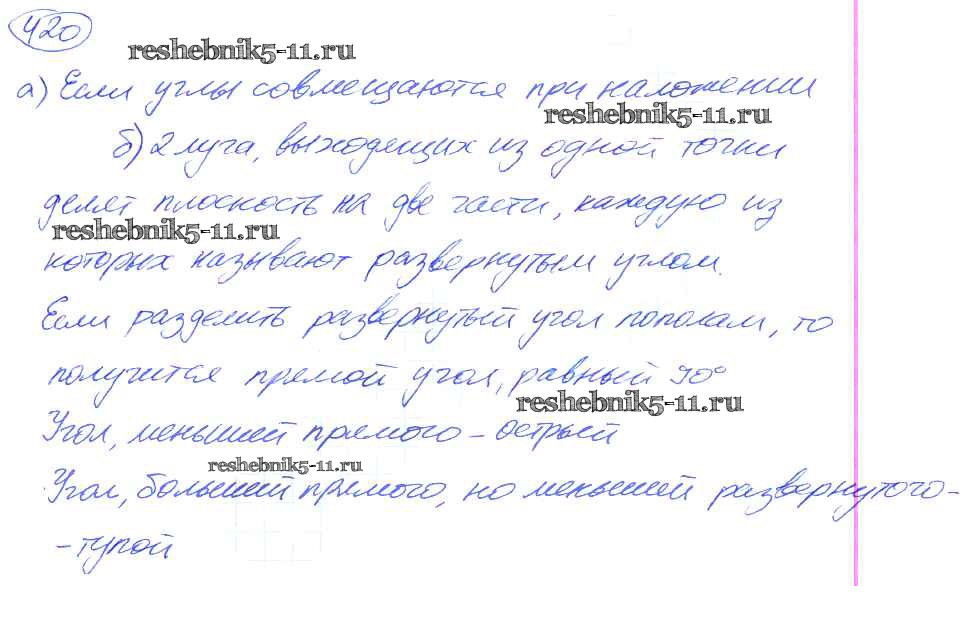 420
reshebnik5-11.ru
а) Если углы совмещаются при наложении
reshebnik5-11.ru
б) 2 луча, выходящих из одной точки
делят плоскость на две части, каждую из
reshebnik5-11.ru
которых называют развернутым углом.
Если разделить развернутый угол пополам, то
получится прямой угол, равный 90°
reshebnik5-11.ru
Угол, меньший прямого – острый
reshebnik5-11.ru
Угол, больший прямого, но меньший развернутого –
– тупой